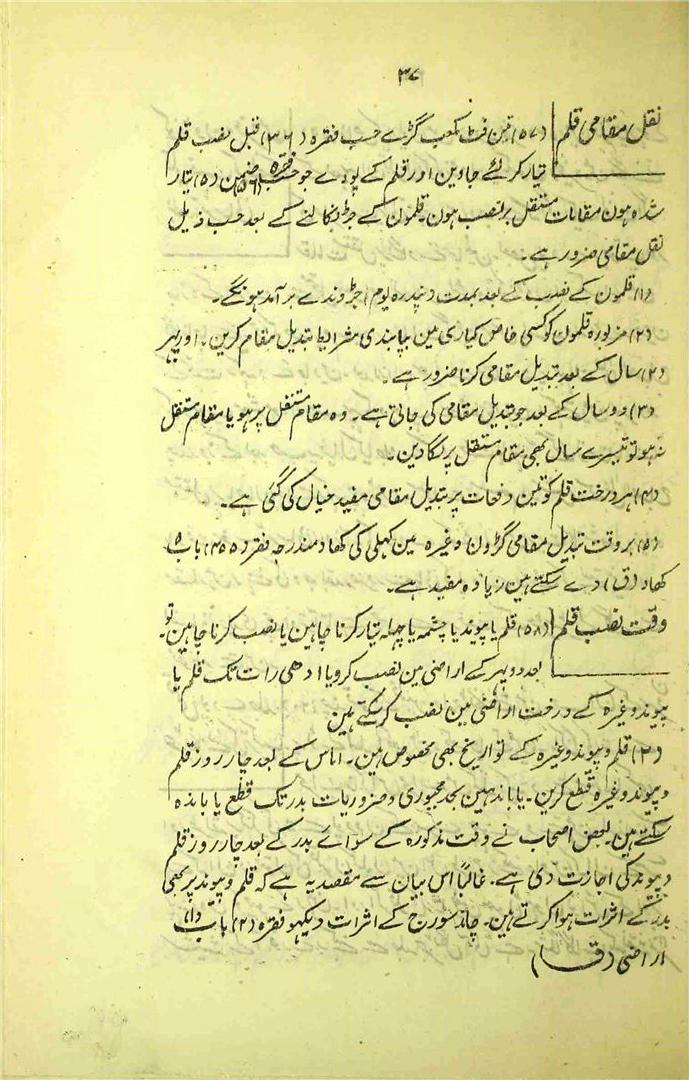 ۳۷
نقل مقامی قلم (۵۷) تین فٹ مکعب گڑے حسب فقرہ (۳۶) قبل نصب قلم
تیار کر لئے جاوین اور قلم کے پودے جو حسب فقرہ (۵۶) ضمن (۵) تیار
شدہ ہون مقامات مستقل پر نصب ہون۔ قلمون کے جڑ نکالنے کے بعد حسب ذیل
نقل مقامی ضرور ہے۔
(۱) قلمون کے نصب کے بعد بمدت (پندرہ یوم) جڑ وندے برآمد ہونگے۔
(۲) مزبورہ قلمون کو کسی خاص کیاری مین بپابندی شرایط تبدیل مقام کرین۔ اور پہر
(۲) سال کے بعد تبدیل مقامی کرنا ضرور ہے۔
(۳) دو سال کے بعد جو تبدیل مقامی کی جاتی ہے۔ وہ مقام مستقل پر ہو یا مقام مستقل
نہ ہو تو تیسرے سال بھی مقام مستقل پر لگا دین۔
(۴) ہر درخت قلم کو تین دفعات پر تبدیل مقامی مفید خیال کی گئی ہے۔
(۵) بر وقت تبدیل مقامی گڑون وغیرہ مین کہلی کی کھاد مندرجہ فقرہ (۴۵۵) باب ۵
کھاد (ق) دے سکتے ہین زیادہ مفید ہے۔
وقت نصب قلم (۵۸) قلم یا پیوند یا چشمہ یا چہلہ تیار کرنا چاہین یا نصب کرنا چاہین تو
بعد دوپہر کے اراضی مین نصب کرو یا ادھی رات تک قلم یا
پیوند وغیرہ کے درخت اراضی مین نصب کر سکتے ہین
(۲) قلم و پیوند وغیرہ کے تواریخ بھی مخصوص ہین۔ اماس کے بعد چار روز قلم
و پیوند وغیرہ قطع کرین۔ یا باندہین بحد مجبوری و ضروریات بدر تک قطع یا باندہ
سکتے ہین۔ بعض اصحاب نے وقت مذکورہ کے سوائے بدر کے بعد چار روز قلم
و پیوند کی اجازت دی ہے۔ غالباً اس بیان سے مقصد یہ ہے کہ قلم و پیوند پر بھی
بدر کے اثرات ہوا کرتے ہین۔ چاند سورج کے اثرات دیکھو فقرہ (۲) باب (۱)
اراضی (ق)